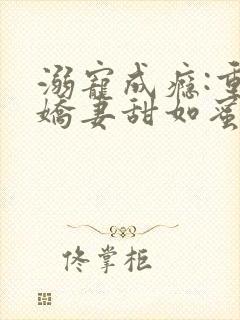 溺寵成癮:重
嬌妻甜如蜜
佟掌柜